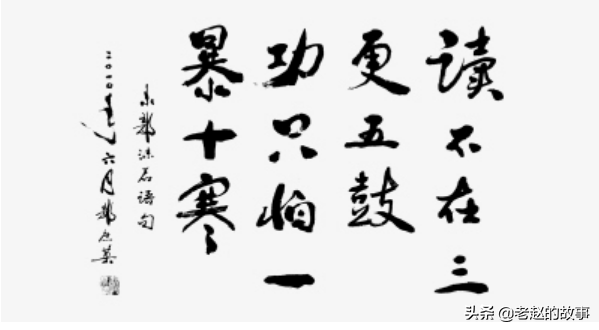 讀不在三
更五鼓
功只怕一
暴十寒
录郭沫若语句
二〇一〇年六月
头条 @老赵的故事